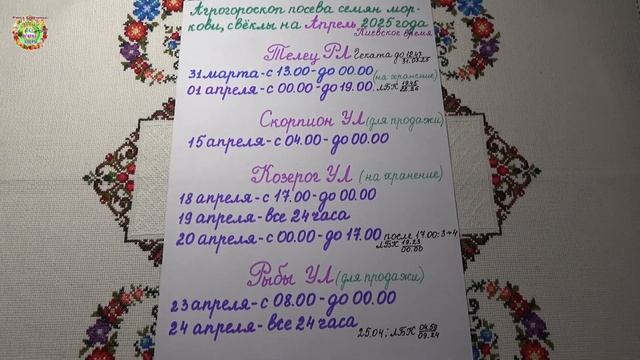 Агрогороскоп посева семян мор-
кови, свёклы на Апрель 2025 года
Киевское время
Телец РЛ Геката до 12.43
31.03.25
31 марта - с 13.00 - до 00.00 (на хранение)
01 апреля - с 00.00 - до 19.00. ЛБК
Скорпион УЛ (для продажи)
15 апреля - с 04.00 - до 00.00
Козерог УЛ (на хранение)
18 апреля - с 17.00 - до 00.00
19 апреля - все 24 часа
20 апреля - с 00.00 - до 17.00 после 17.00: 3→4
ЛБК 19.23
00.00
Рыбы УЛ (для продажи)
23 апреля - с 08.00 - до 00.00
24 апреля - все 24 часа
25.04; ЛБК 04.59
09.24